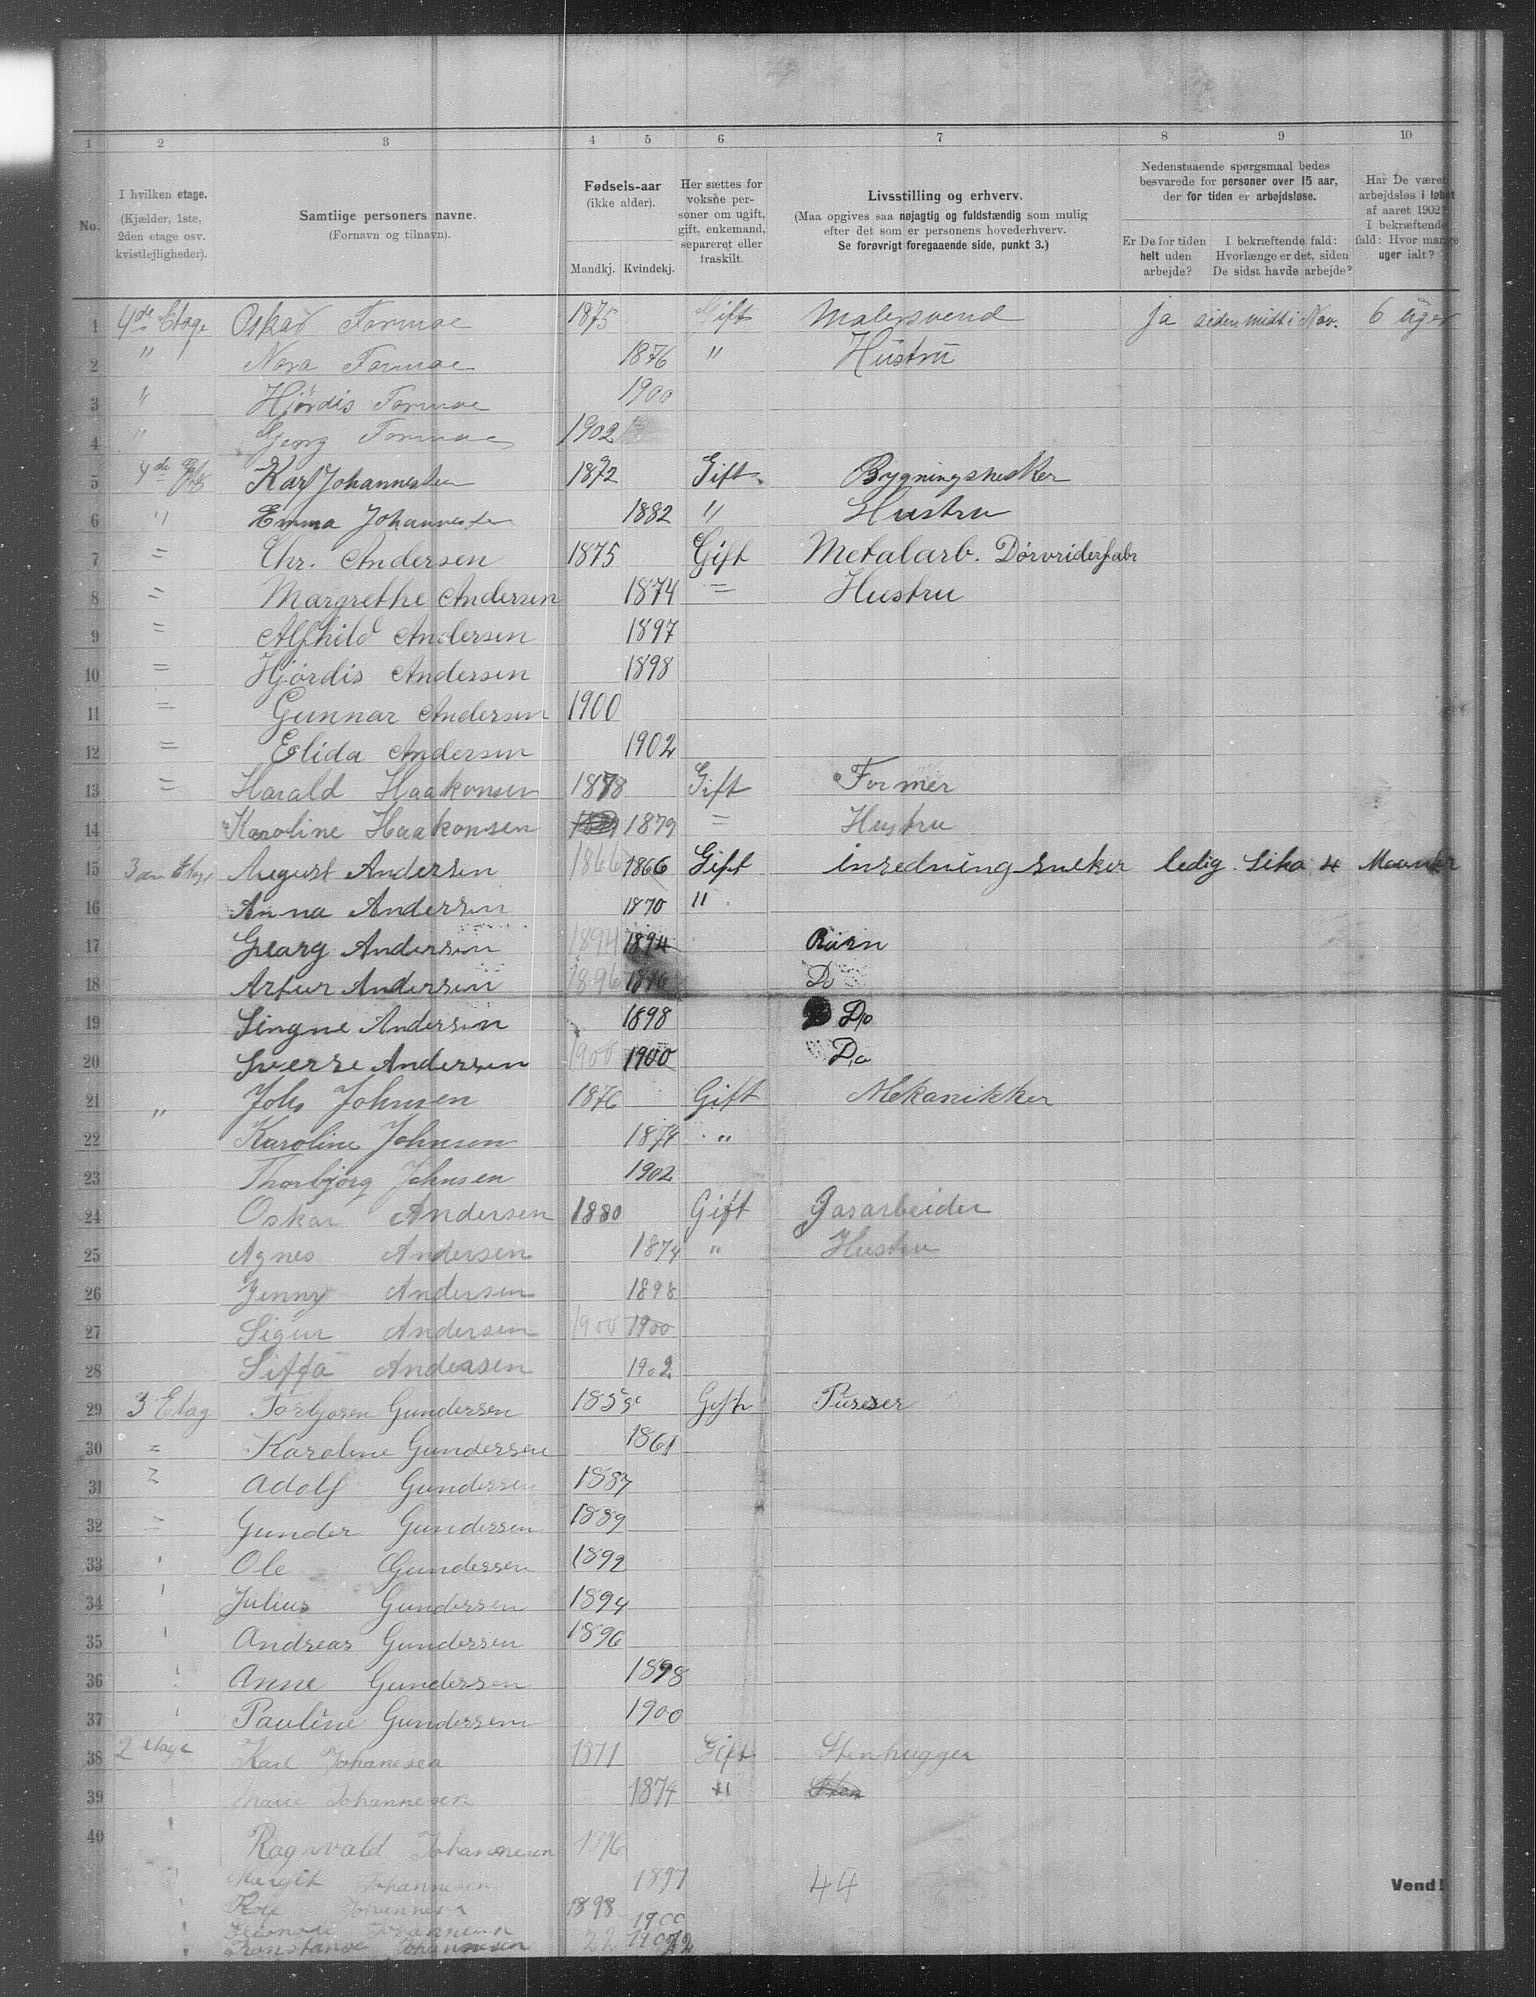 1 2 3 4 5 6 7 8 9 10
No.
I hvilken etage.
(Kjælder, 1ste,
2den etage osv.
kvistlejligheder).
Samtlige personers navne.
(Fornavn og tilnavn).
Fødsels-aar
(ikke alder).
Mandkj. Kvindekj.
Her sættes for
voksne per-
soner om ugift,
gift, enkemand,
separeret eller
fraskilt.
Livsstilling og erhverv.
(Maa opgives saa nøjagtig og fuldstændig som mulig
efter det som er personens hovederhverv.
Se forøvrigt foregaaende side, punkt 3.)
Nedenstaaende spørgsmaal bedes
besvarede for personer over 15 aar,
der for tiden er arbejdsløse.
Er De for tiden
helt uden
arbejde?
I bekræftende fald:
Hvorlænge er det, siden
De sidst havde arbejde?
Har De været
arbejdsløs i løbet
af aaret 1902?
I bekræftende
fald: Hvor mange
uger ialt?
1 4de Etage Oskar Formoe 1875 Gift Malersvend Ja siden midt i Nov. 6 uger
2 " Nora Formoe 1876 " Hustru
3 " Hjørdis Formoe 1900
4 " Georg Formoe 1902
5 4de Etg Karl Johannesen 1872 Gift Bygningssnekker
6 " Emma Johannesen 1882 " Hustru
7 = Chr. Andersen 1875 Gift Metalarb. Dørvriderfabr
8 = Margrethe Andersen 1874 = Hustru
9 = Alfhild Andersen 1897
10 = Hjørdis Andersen 1898
11 = Gunnar Andersen 1900
12 = Elida Andersen 1902
13 = Harald Haakonsen 1878 Gift Former
14 Karoline Haakonsen 1879 = Hustru
15 3die Etage August Andersen 1866 1866 Gift insedning snekker ledig Sika 4 Maaneder
16 Anna Andersen 1870 "
17 Georg Andersen 1894 1894 Barn
18 Artur Andersen 1896 1896 Do
19 Singne Andersen 1898 Do
20 Sverre Andersen 1900 1900 Do
21 " Johs Johnsen 1876 Gift Mekanikker
22 Karoline Johnsen 1874 "
23 Thorbjørg Johnsen 1902
24 Oskar Andersen 1880 Gift Gasarbeider
25 Agnes Andersen 1874 " Hustru
26 Jenny Andersen 1898
27 Sigur Andersen 1900 1900
28 Andersen 1902
29 3 Etag Torbjøren Gundersen 185 Gift
30 = Karoline Gundersen 1861
31 = Adolf Gundersen 1887
32 = Gunder Gundersen 1889
33 Ole Gundersen 1892
34 Julius Gundersen 1894
35 Andreas Gundersen 1896
36 Anne Gundersen 1898
37 Pauline Gundersen 1900
38 2 etage Karl Johanesen 1871 Gift Stenhugger
39 Marie Johannesen 1874 "
40 Ragnvald Johannesen 1896
Margit Johannesen 1897 44 Vend!
Johannesen 1898
Johannesen 1900
Johannesen 22 1902